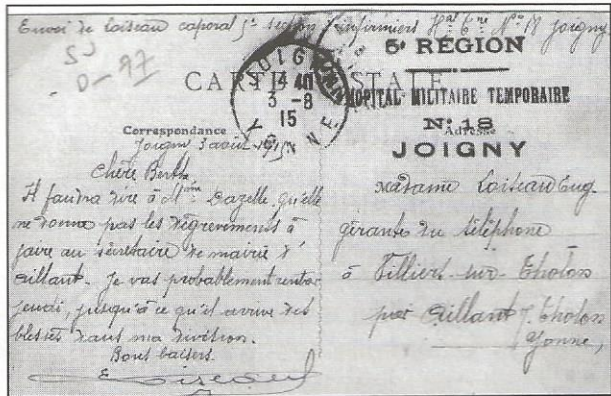 Envoi de Loiseau caporal 5e section d'infirmiers Hal Cre No 18 Joigny
SJ
0-97
5e RÉGION
HOPITAL MILITAIRE TEMPORAIRE
No 18
JOIGNY
CARTE POSTALE
JOIGNY
14 40
3 -8
15
YONNE
Correspondance
Joigny 3 août 1915
Chère Berthe
Il faudra dire à Mme Dazelle qu'elle
ne donne pas les dégrèvements à
faire au secrétaire de mairie d'
Aillant. Je vas probablement rentrer
jeudi, jusqu'à ce qu'il arrive des
blessés dans ma division.
Bons baisers.
E Loiseau
Adresse
Madame Loiseau Eug.
gérante du téléphone
à Villiers-sur-Tholon
par Aillant s/ Tholon
Yonne,